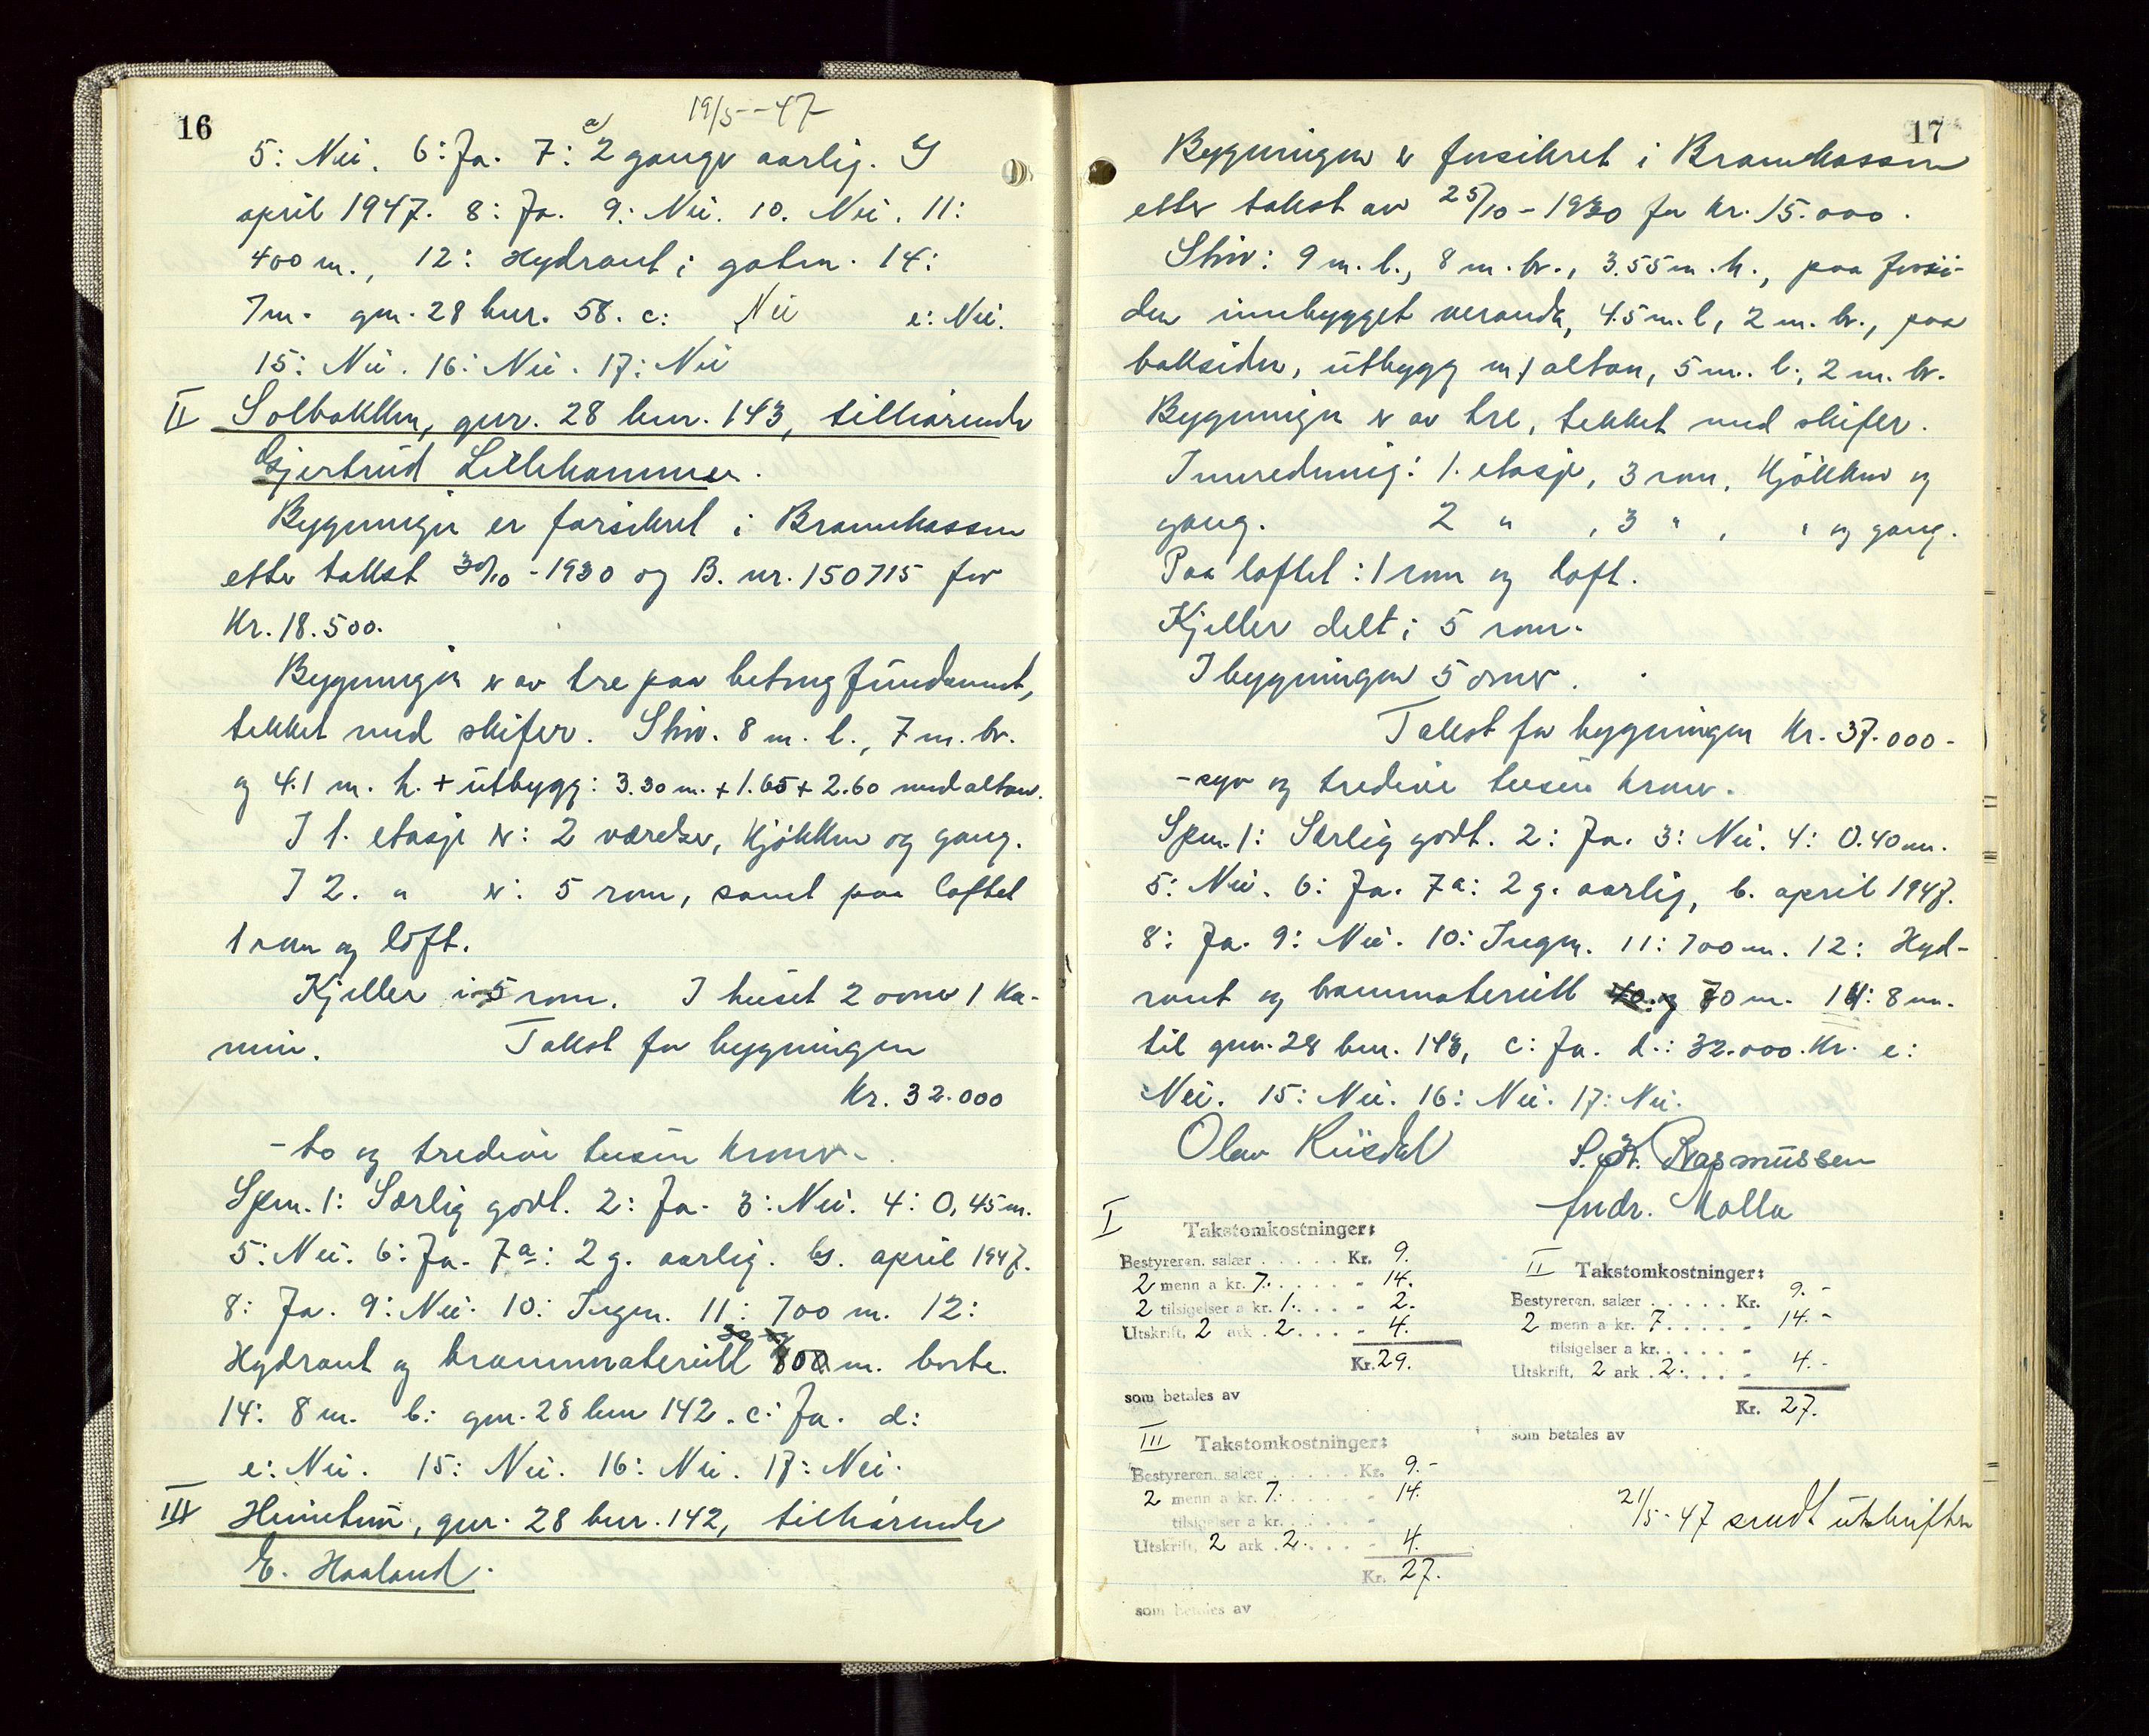 16
19/5--47
5: Nei. 6: Ja. 7: a/ 2 gange aarlig. b
april 1947. 8: Ja. 9: Nei. 10. Nei. 11:
400 m., 12: Hydrant i gaten. 14:
7m. gnr. 28 bnr. 58. c: Nei e: Nei.
15: Nei. 16: Nei. 17: Nei
II Solbakken, gnr. 28 bnr. 143, tilhörende
Gjertrud Lillehammer.
Bygningen er forsikret i Brannkassen
etter takst 30/10 - 1930 og B. nr. 150715 for
Kr. 18.500.
Bygningen er av tre paa betongfundament,
tekket med skifer. Stör. 8 m. l., 7 m. br.
og 4.1 m. h. + utbygg: 3.30 m. + 1.65 + 2.60 med altan.
I 1. etasje er: 2 værelser, kjökken og gang.
I 2. " er: 5 rom, samt paa loftet
1 rom og loft.
Kjeller i 5 rom. I huset 2 ovner 1 Ka-
min. Takst for bygningen
Kr. 32.000
- to og tredive tusen kroner.
Spm. 1: Særlig godt. 2: Ja. 3: Nei. 4: 0,45 m.
5: Nei. 6: Ja. 7a: 2 g. aarlig. b. april 1947.
8: Ja. 9: Nei. 10: Ingen. 11: 700 m. 12:
Hydrant og brannmateriell m. borte.
14: 8 m. b: gnr. 28 bnr 142. c: Ja. d:
e: Nei. 15: Nei. 16: Nei. 17: Nei.
III Heimtun, gnr. 28 bnr. 142, tilhörende
E. Haaland.
17
Bygningen er forsikret i Brannkassen
etter takst av 25/10 - 1930 for Kr. 15.000.
Stör: 9 m. l., 8 m. br., 3.55 m. h., paa forsi-
den innbygget veranda, 4.5 m. l, 2 m. br., paa
baksiden, utbygg m/ altan, 5 m. l., 2 m. br.
Bygningen er av tre, tekket med skifer.
Innredning: 1. etasje, 3 rom, Kjökken og
gang. 2 " , 3 " , " og gang.
Paa loftet: 1 rom og loft.
Kjeller delt i 5 rom.
I bygningen 5 ovner.
Takst for bygningen Kr. 37.000-
- syv og tredive tusen kroner.
Spm. 1: Særlig godt. 2: Ja. 3: Nei. 4: 0.40 m.
5: Nei. 6: Ja. 7a: 2 g. aarlig, b. april 1947.
8: Ja. 9: Nei. 10: Ingen. 11: 700 m. 12: Hyd-
rant og brannmateriell 70 m. 14: 8 m.
til gnr. 28 bnr. 143, c: Ja. d.: 32.000. Kr. e:
Nei. 15: Nei. 16: Nei. 17: Nei.
Olav Riisdal Rasmussen
Andr. Molla
I Takstomkostninger:
Bestyreren, salær ..... Kr. 9.
2 menn a kr. 7. ..... " 14.
2 tilsigelser a kr. 1. .... " 2.
Utskrift, 2 ark . 2 .... " 4.
Kr. 29.
som betales av
II Takstomkostninger:
Bestyreren, salær ..... Kr. 9.-
2 menn a kr. 7 ..... " 14.-
tilsigelser a kr. ..... "
Utskrift, 2 ark . 2. ... " 4.-
Kr. 27.
som betales av
III Takstomkostninger:
Bestyreren, salær ..... Kr. 9.-
2 menn a kr. 7. ..... " 14.
tilsigelser a kr. .... "
Utskrift, 2 ark . 2. ... " 4.
Kr. 27.
som betales av
21/5-47 sendt utskriften